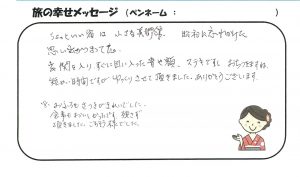 旅の幸せメッセージ (ペンネーム : )
といい宿は 小さな美術館、昭和に
思い出がつまってた。
玄関を入り、すぐに目に入った 、ステキです。おちつきますね。
短かい時間ですが ゆっくりさせて頂きました。ありがとうございます。
おふろもさっきがきれいでした。
食事もおいしかったです。残さず
頂きました。ごちそう様でした。